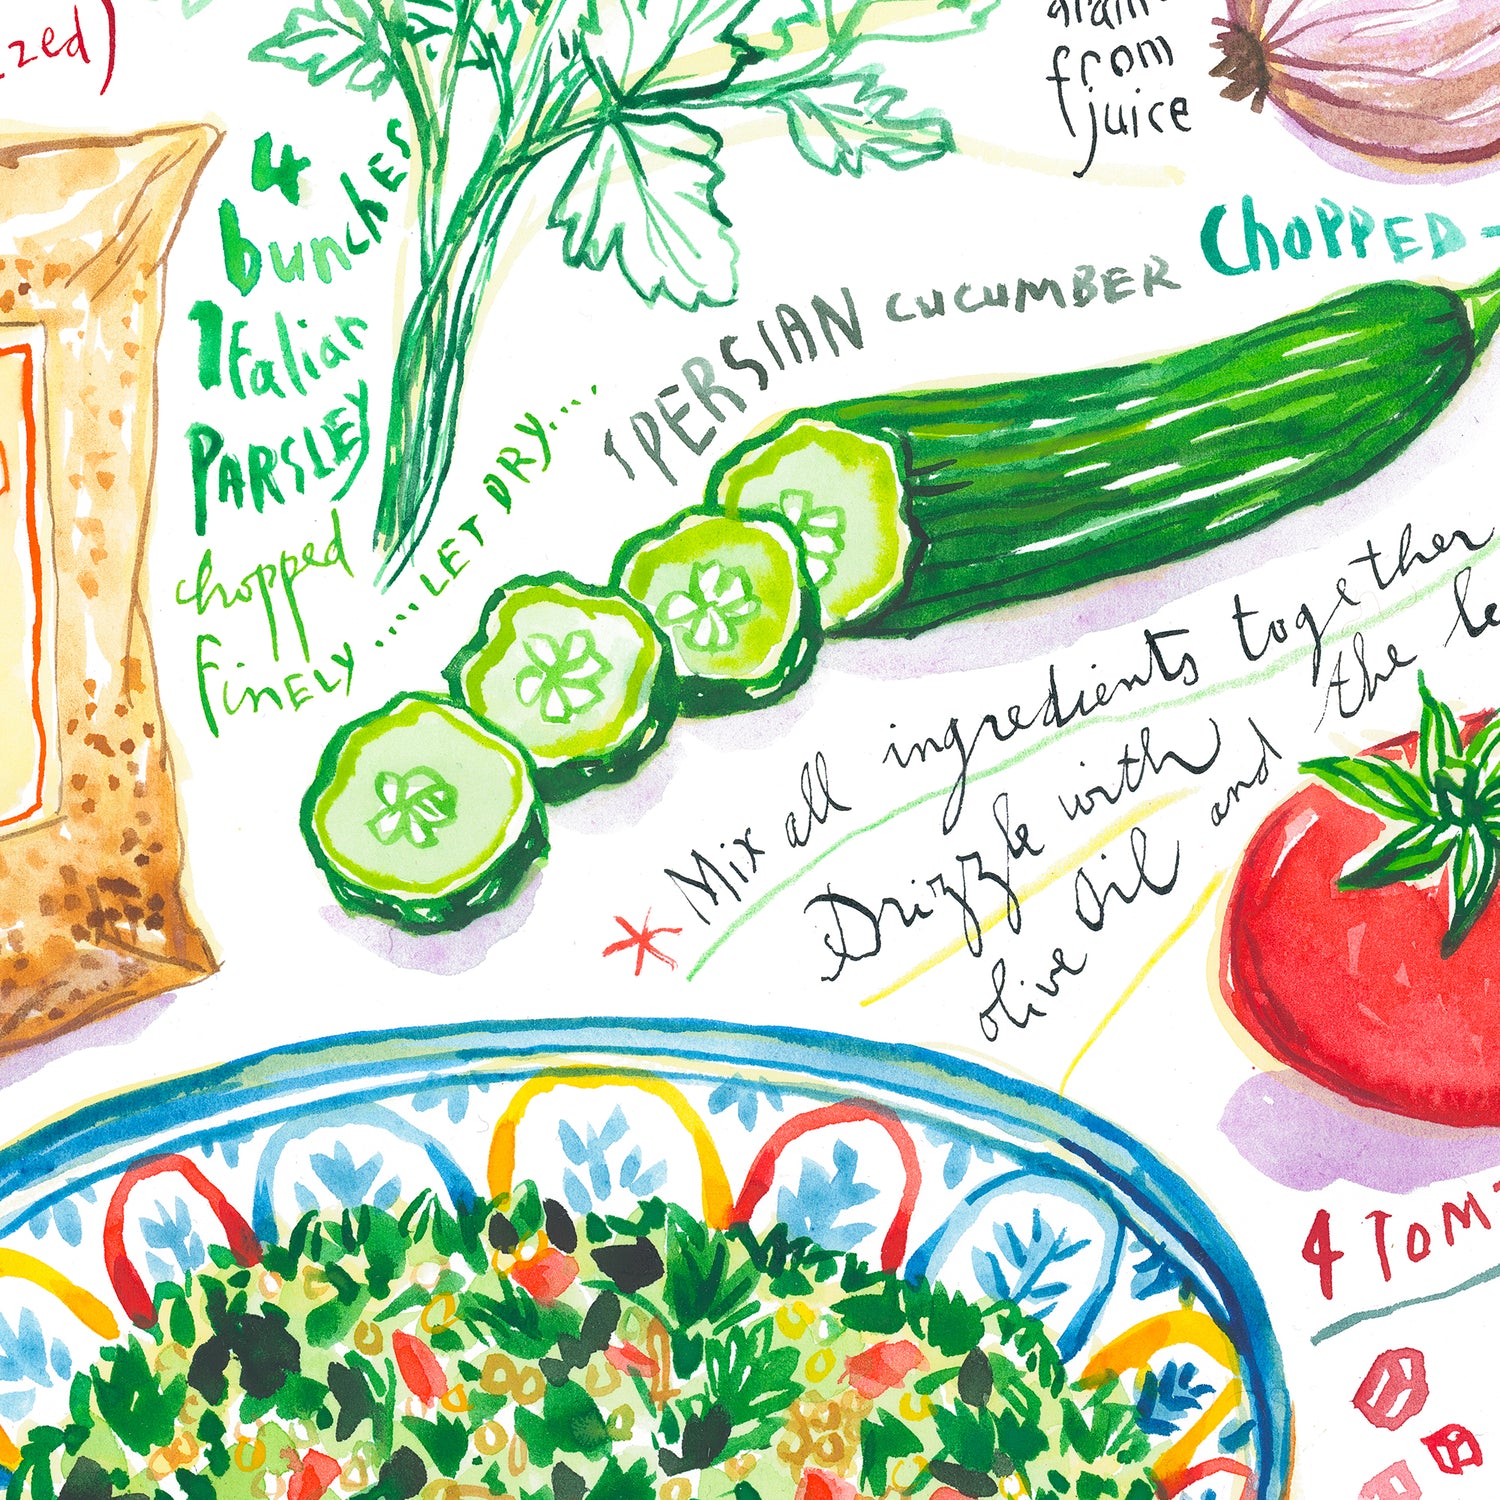 zed)
from
juice
4
bunches
Italian
PARSLEY
chopped
finELY .....LET DRY....
1 PERSIAN CUCUMBER ChOPPED -
* Mix all ingredients together
Drizzle with
olive oil and the le
4 TOM